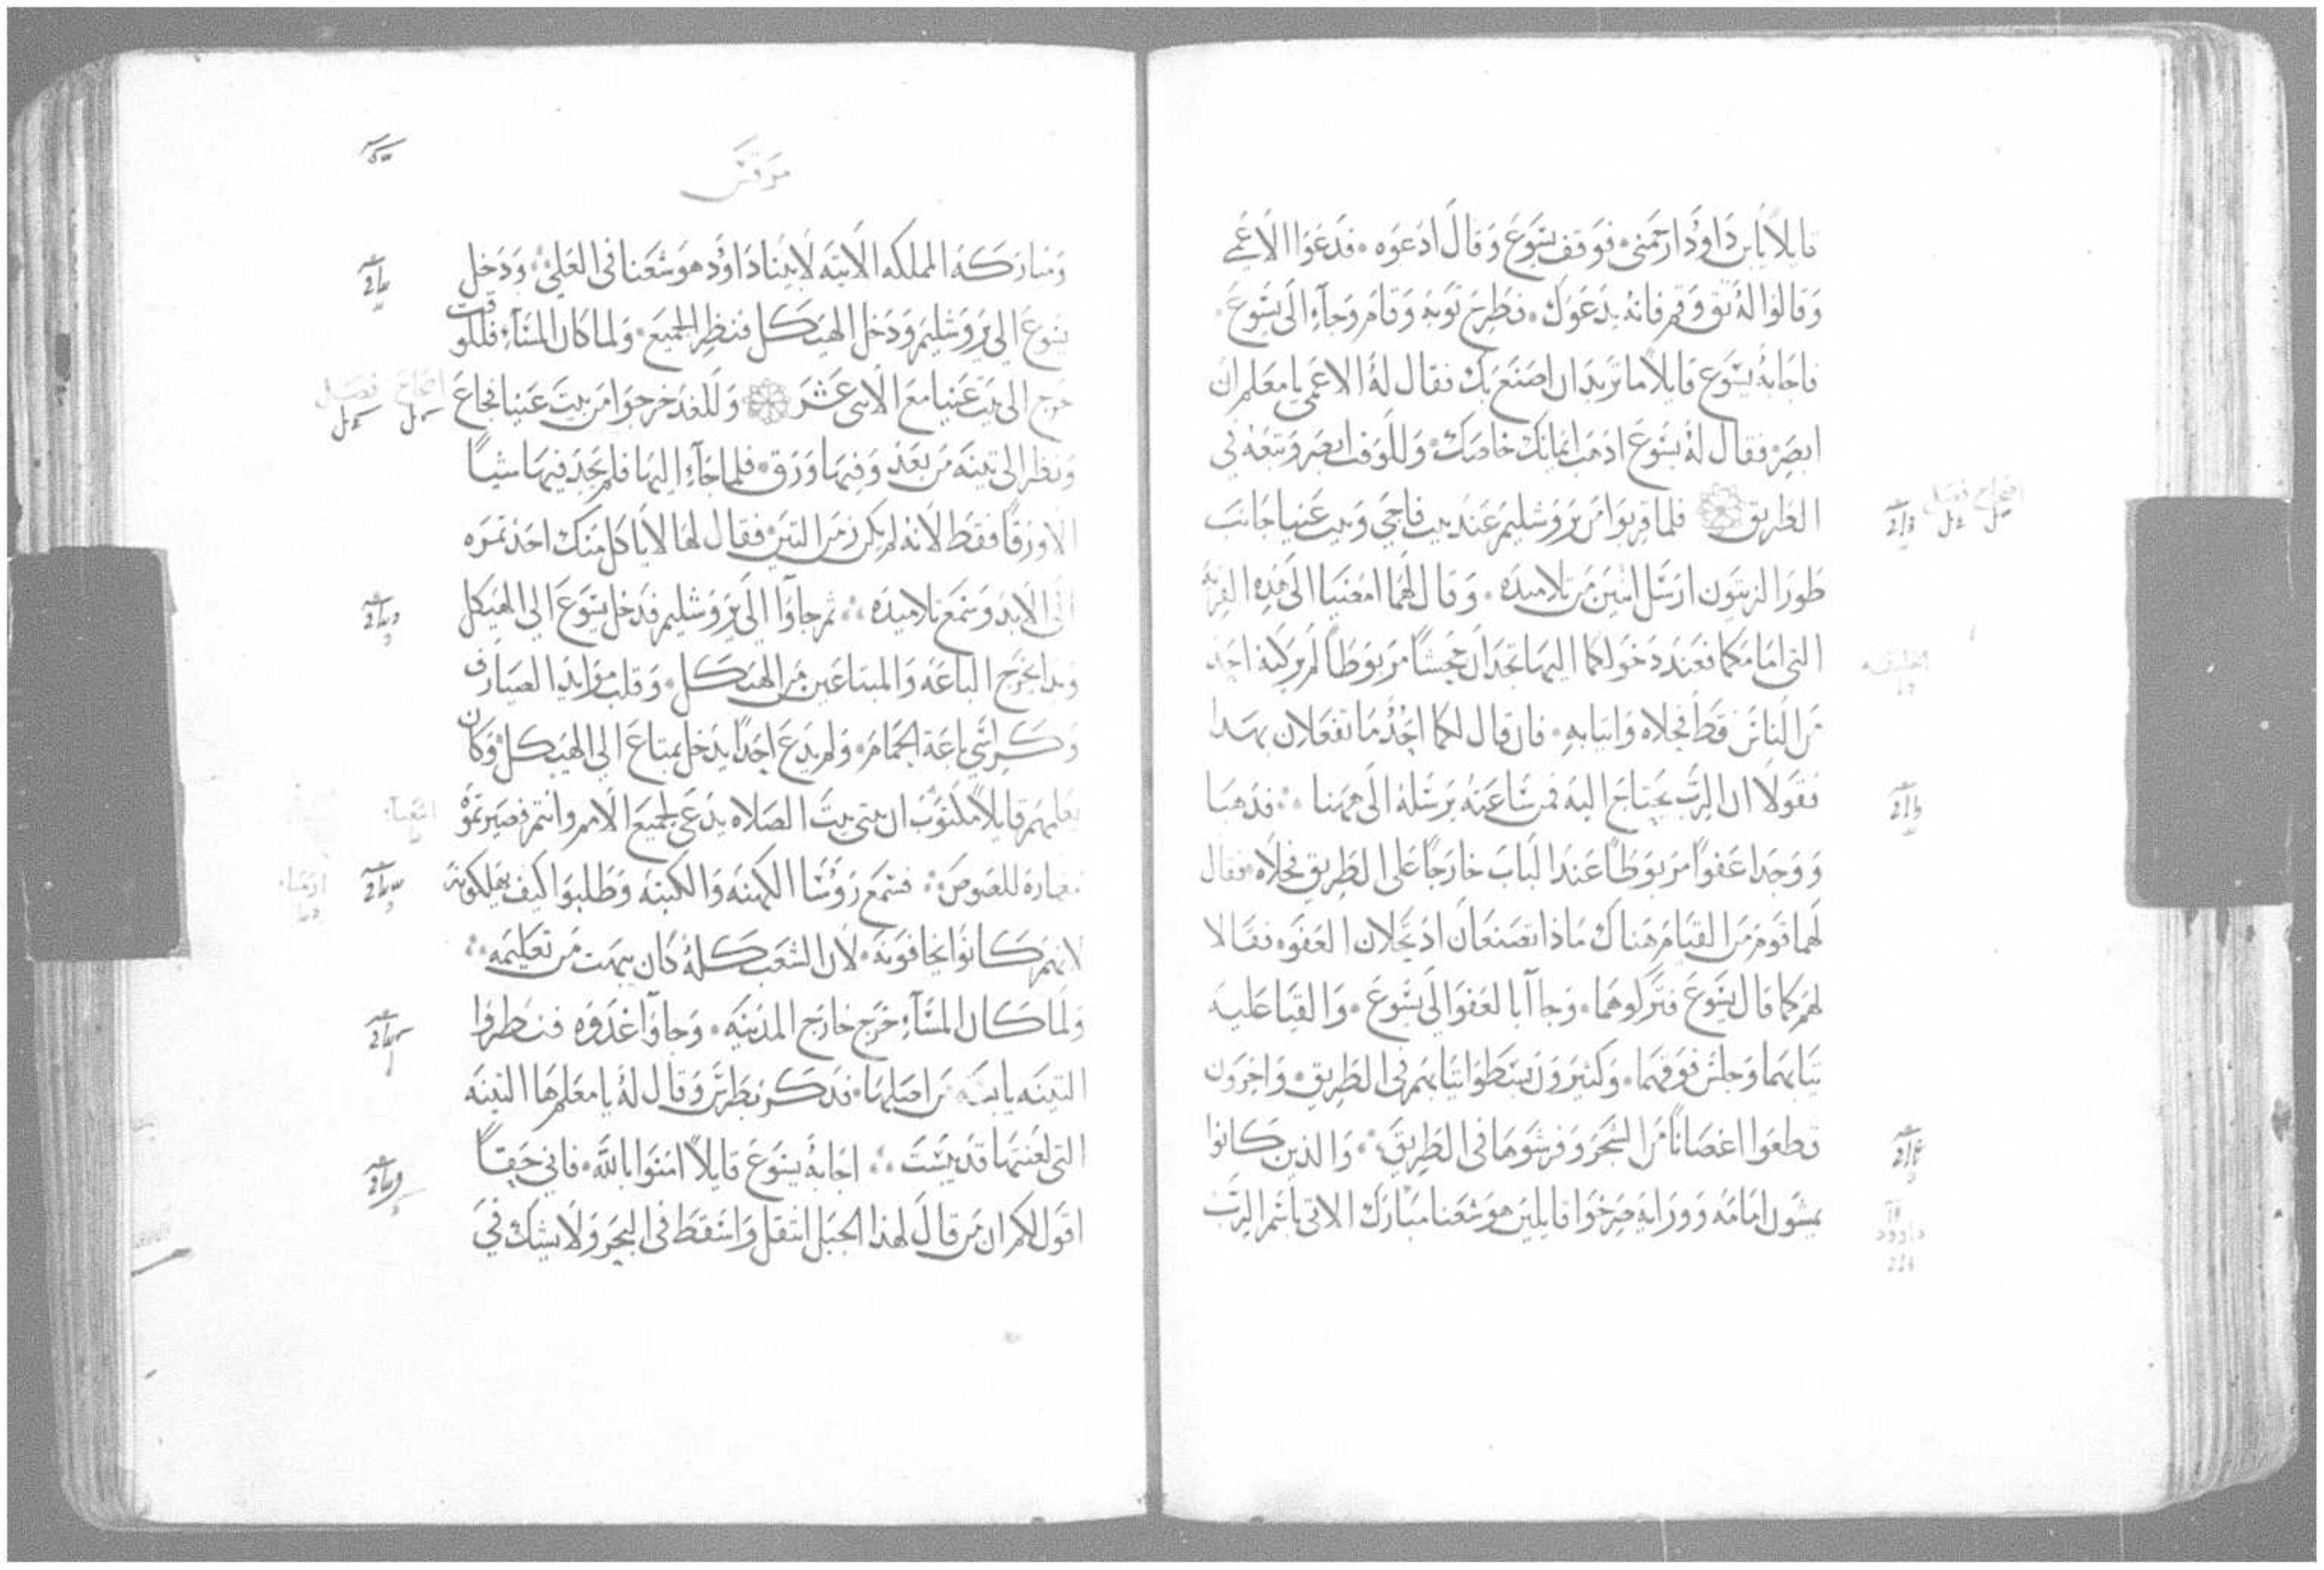 قايلاً يابن داوُد ارحمني فوقف يسوع وقال ادعوه فدعوا الاعمى
وقالوا له ثق وقم فانه يدعوك فطرح ثوبه وقام وجآء الى يسوع
فاجابه يسوع قايلاً ما تريد ان اصنع بك فقال له الاعمى يا معلم ان
ابصر فقال له يسوع اذهب ايمانك خلصك وللوقت ابصر وتبعه في
الطريق فلما قربوا من يروشليم عند بيت فاجي وبيت عنيا جانب
طور الزيتون ارسل اثنين من تلاميذه وقال لهما امضيا الى هذه القرية
التي امامكما فعند دخولكما اليها تجدان جحشاً مربوطاً لم يركبه احد
من الناس قط فحلاه وائتيا به فان قال لكما احدٌ ما تفعلان بهذا
فقولا ان الرب يحتاج اليه فمن ساعته يرسله الى ههنا فذهبا
ووجدا عفواً مربوطاً عند الباب خارجاً على الطريق فحلاه فقال
لهما قوم من القيام هناك ماذا تصنعان اذ تحلان العفو فقالا
لهم كما قال يسوع فتركوهما وجاآ بالعفو الى يسوع والقيا عليه
ثيابهما وجلس فوقهما وكثيرون بسطوا ثيابهم في الطريق واخرون
قطعوا اغصاناً من الشجر وفرشوها في الطريق والذين كانوا
يمشون امامه وورايه صرخوا قايلين هوشعنا مبارك الاتي باسم الرب
داوود
مرقس
ومباركة المملكه الاتيه لابينا داوُد هوشعنا في العلي ودخل
يسوع الى يروشليم ودخل الهيكل فنظر الجميع ولما كان المسآء فللوقت
خرج الى بيت عنيا مع الاثنى عشر وللغد خرجوا من بيت عنيا فجاع
ونظر الى تينه من بعد وفيها ورق فلما جآء اليها فلم يجد فيها شياً
الا ورقاً فقط لانه لم يكن زمن التين فقال لها لا ياكل منك احد ثمره
الى الابد وسمع تلاميذه ثم جاوا الى يروشليم فدخل يسوع الى الهيكل
وبدا يخرج الباعه والمبتاعين من الهيكل وقلب موايد الصيارف
وكراسي باعة الحمام ولم يدع احداً يدخل بمتاع الى الهيكل وكان
يعلمهم قايلاً مكتوب ان بيتي بيت الصلاه يدعى لجميع الامم وانتم فصيرتموه
مغارة للصوص فسمع روُسا الكهنه والكتبه وطلبوا كيف يهلكونه
لانهم كانوا يخافونه لان الشعب كله كان يبهت من تعليمه
ولما كان المسآء خرج خارج المدينه وجاوا غدوه فنظروا
التينه يابسه من اصلها فذكر بطرس وقال له يا معلم ها التينه
التي لعنتها قد يبست اجابه يسوع قايلاً امنوا بالله فاني حقاً
اقول لكم ان من قال لهذا الجبل انتقل واسقط في البحر ولا يشك في